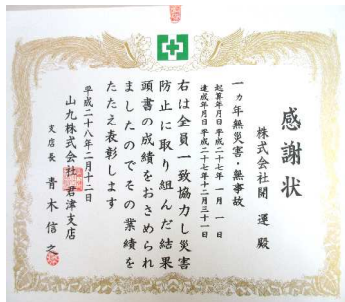 感謝状
株式会社開運殿
一ヵ年無災害・無事故
起算年月日平成二十七年一月一日
達成年月日平成二十七年十二月三十一日
右は全員一致協力し災害
防止に取り組んだ結果
頭書の成績をおさめられ
ましたのでその業績を
たたえ表彰します
平成二十八年二月十二日
山九株式会社君津支店
支店長青木信之